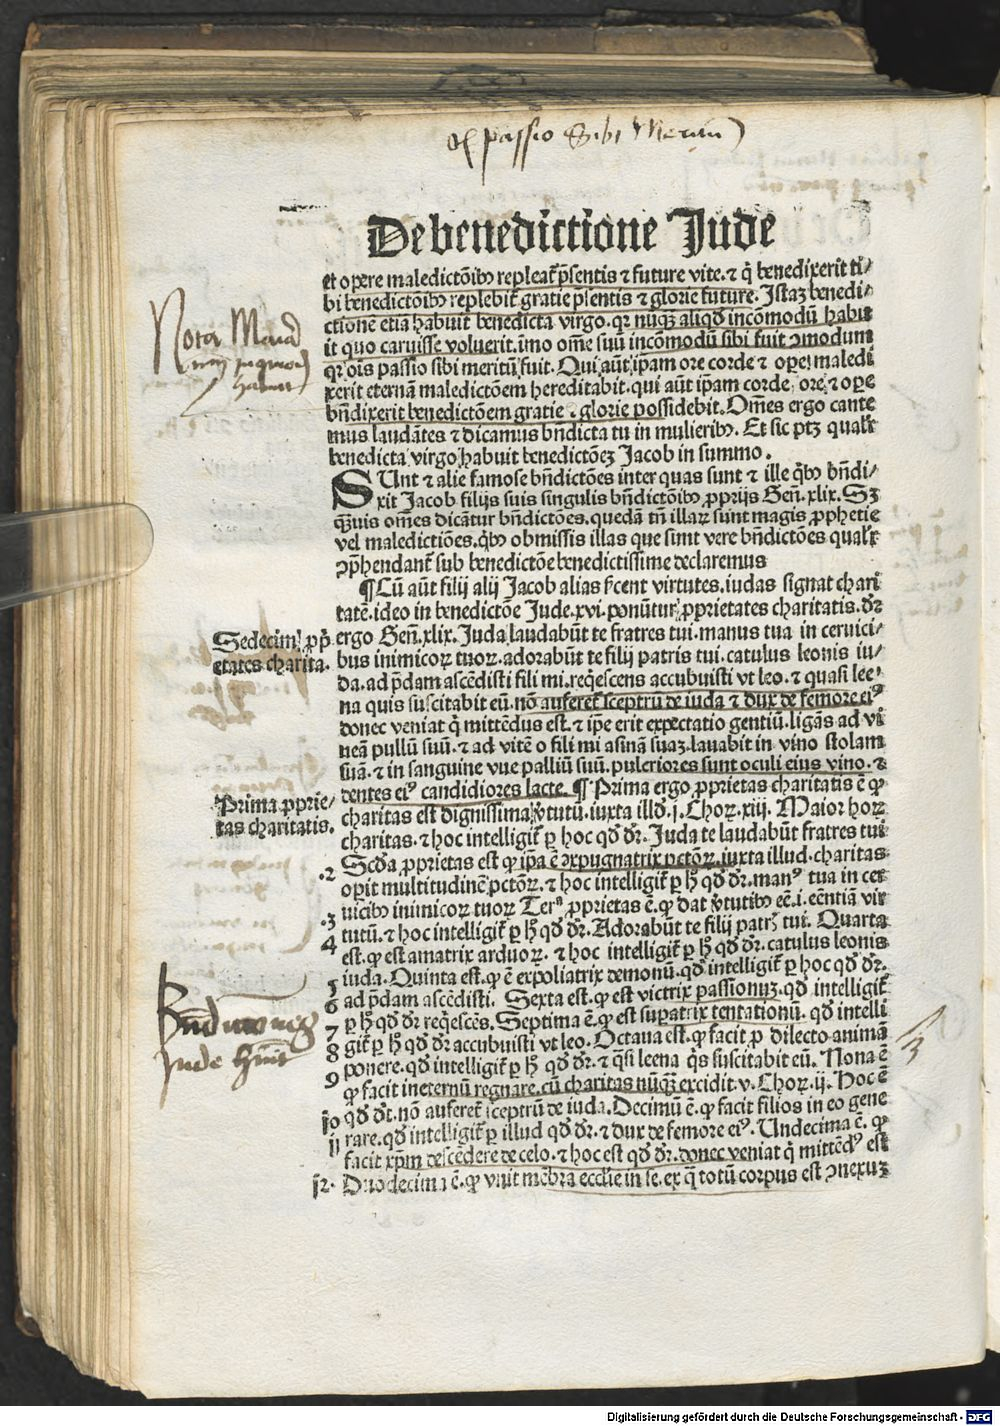 passio sibi Meritū
De benedictione Jude
et opere maledictōibꝫ repleat᷑ p̄sentis ⁊ future vite. ⁊ q̄ benedixerit ti/
bi benedictōibꝫ replebit᷑ gratie p̄sentis ⁊ glorie future. Istaꝫ benedi/
ctionē etiā habuit benedicta virgo. qꝛ nūꝙ̄ aliqd̄ incōmodū habu
it quo caruisse voluerit. īmo om̄e suū incōmodū sibi fuit ꝯmodum
qꝛ oīs passio sibi meritū fuit. Qui aūt ip̄am ore corde ⁊ oꝑe maledi
xerit eternā maledictōem hereditabit. qui aūt ip̄am corde ore ⁊ oꝑe
bn̄dixerit benedictōem gratie ⁊ glorie possidebit. Om̄es ergo cante
mus laudātes ⁊ dicamus bn̄dicta tu in mulieribꝫ. Et sic ptꝫ qualr̄
benedicta virgo habuit benedictōeꝫ Jacob in summo.
Nota Maria
SUnt ⁊ alie famose bn̄dictōes inter quas sunt ⁊ ille q̄bꝫ bn̄di/
xit Jacob filijs suis singulis bn̄dictōibꝫ ꝓprijs Gen̄. xlix. Sꝫ
ꝙ̄uis om̄es dicāt᷑ur bn̄dictōes. quedā tn̄ illaꝝ sunt magis ꝓphetie
vel maledictiōes. q̄bꝫ obmissis illas que sunt vere bn̄dictōes qualr̄
ꝯp̄hendant᷑ sub benedictōe benedictissime declaremus
¶ Cū aūt filij alij Jacob alias s̄cent virtutes. iudas signat chari
tatē. ideo in benedictōe Jude. xvi. ponūtur ꝓprietates charitatis. dr̄
ergo Gen̄. xlix. Juda laudabūt te fratres tui. manus tua in ceruici/
bus inimicoꝝ tuoꝝ. adorabūt te filij patris tui. catulus leonis iu/
da. ad p̄dam ascēdisti fili mi. req̄escens accubuisti vt leo. ⁊ quasi lee/
na quis suscitabit eū. nō auferet᷑ sceptrū de iuda ⁊ dux de femore eiꝰ
donec veniat q̄ mittēdus est. ⁊ ip̄e erit expectatio gentiū. ligās ad vi
neā pullū suū. ⁊ ad vitē o fili mi asinā suaꝫ. lauabit in vino stolam
suā. ⁊ in sanguine vue palliū suū. pulcriores sunt oculi eius vino. ⁊
dentes eiꝰ candidiores lacte. ¶ Prima ergo ꝓprietas charitatis ē ꝙ
charitas est dignissima v̄tutū. iuxta illd̄. j. Choꝝ. xiij. Maior hoꝝ
charitas. ⁊ hoc intelligit᷑ ꝑ hoc qd̄ dr̄. Juda te laudabūt fratres tui
Scd̄a ꝓprietas est ꝙ ip̄a ē expugnatrix pctōꝝ. iuxta illud. charitas
oꝑit multitudinē pctōꝝ. ⁊ hoc intelligit᷑ ꝑ h̄ qd̄ dr̄. manꝰ tua in cer
uicibꝫ inimicoꝝ tuoꝝ Terᵃ ꝓprietas ē. ꝙ dat v̄tutibꝫ eē. i. eēntiā vir
tutū. ⁊ hoc intelligit᷑ ꝑ h̄ qd̄ dr̄. Adorabūt te filij patr̄ tui. Quarta
est. ꝙ est amatrix arduoꝝ. ⁊ hoc intelligit᷑ ꝑ h̄ qd̄ dr̄. catulus leonis
iuda. Quinta est. ꝙ ē expoliatrix demonū. qd̄ intelligit᷑ ꝑ hoc qd̄ dr̄.
ad p̄dam ascēdisti. Sexta est. ꝙ est victrix passionuꝫ. qd̄ intelligit᷑
ꝑ h̄ qd̄ dr̄ req̄escēs. Septima ē. ꝙ est suꝑatrix tentationū. qd̄ intelli
git᷑ ꝑ h̄ qd̄ dr̄ accubuisti vt leo. Octaua est. ꝙ facit ꝓ dilecto animā
ponere. qd̄ intelligit᷑ ꝑ h̄ qd̄ dr̄. ⁊ q̄si leena q̄s suscitabit eū. Nona ē
ꝙ facit ineternū regnare. cū charitas nūꝙ̄ excidit. v. Choꝝ. ij. Hoc ē
qd̄ dr̄. nō auferet᷑ sceptrū de iuda. Decimū ē. ꝙ facit filios in eo gene
rare. qd̄ intelligit᷑ ꝑ illud qd̄ dr̄. ⁊ dux de femore eiꝰ. Undecima ē. ꝙ
facit xp̄m descēdere de celo. ⁊ hoc est qd̄ dr̄. donec veniat q̄ mittēdꝰ est
Duodecima ē. ꝙ vnit mēbra eccl̄ie in se. ex q̄ totū corpus est ꝯnexuꝫ
Sedecim ꝓp̄
etates charita.
Prima ꝓprie/
tas charitatis.
.2
.3
4
5
6
7
8
9
10
11
12.
Jude
Digitalisierung gefördert durch die Deutsche Forschungsgemeinschaft - DFG